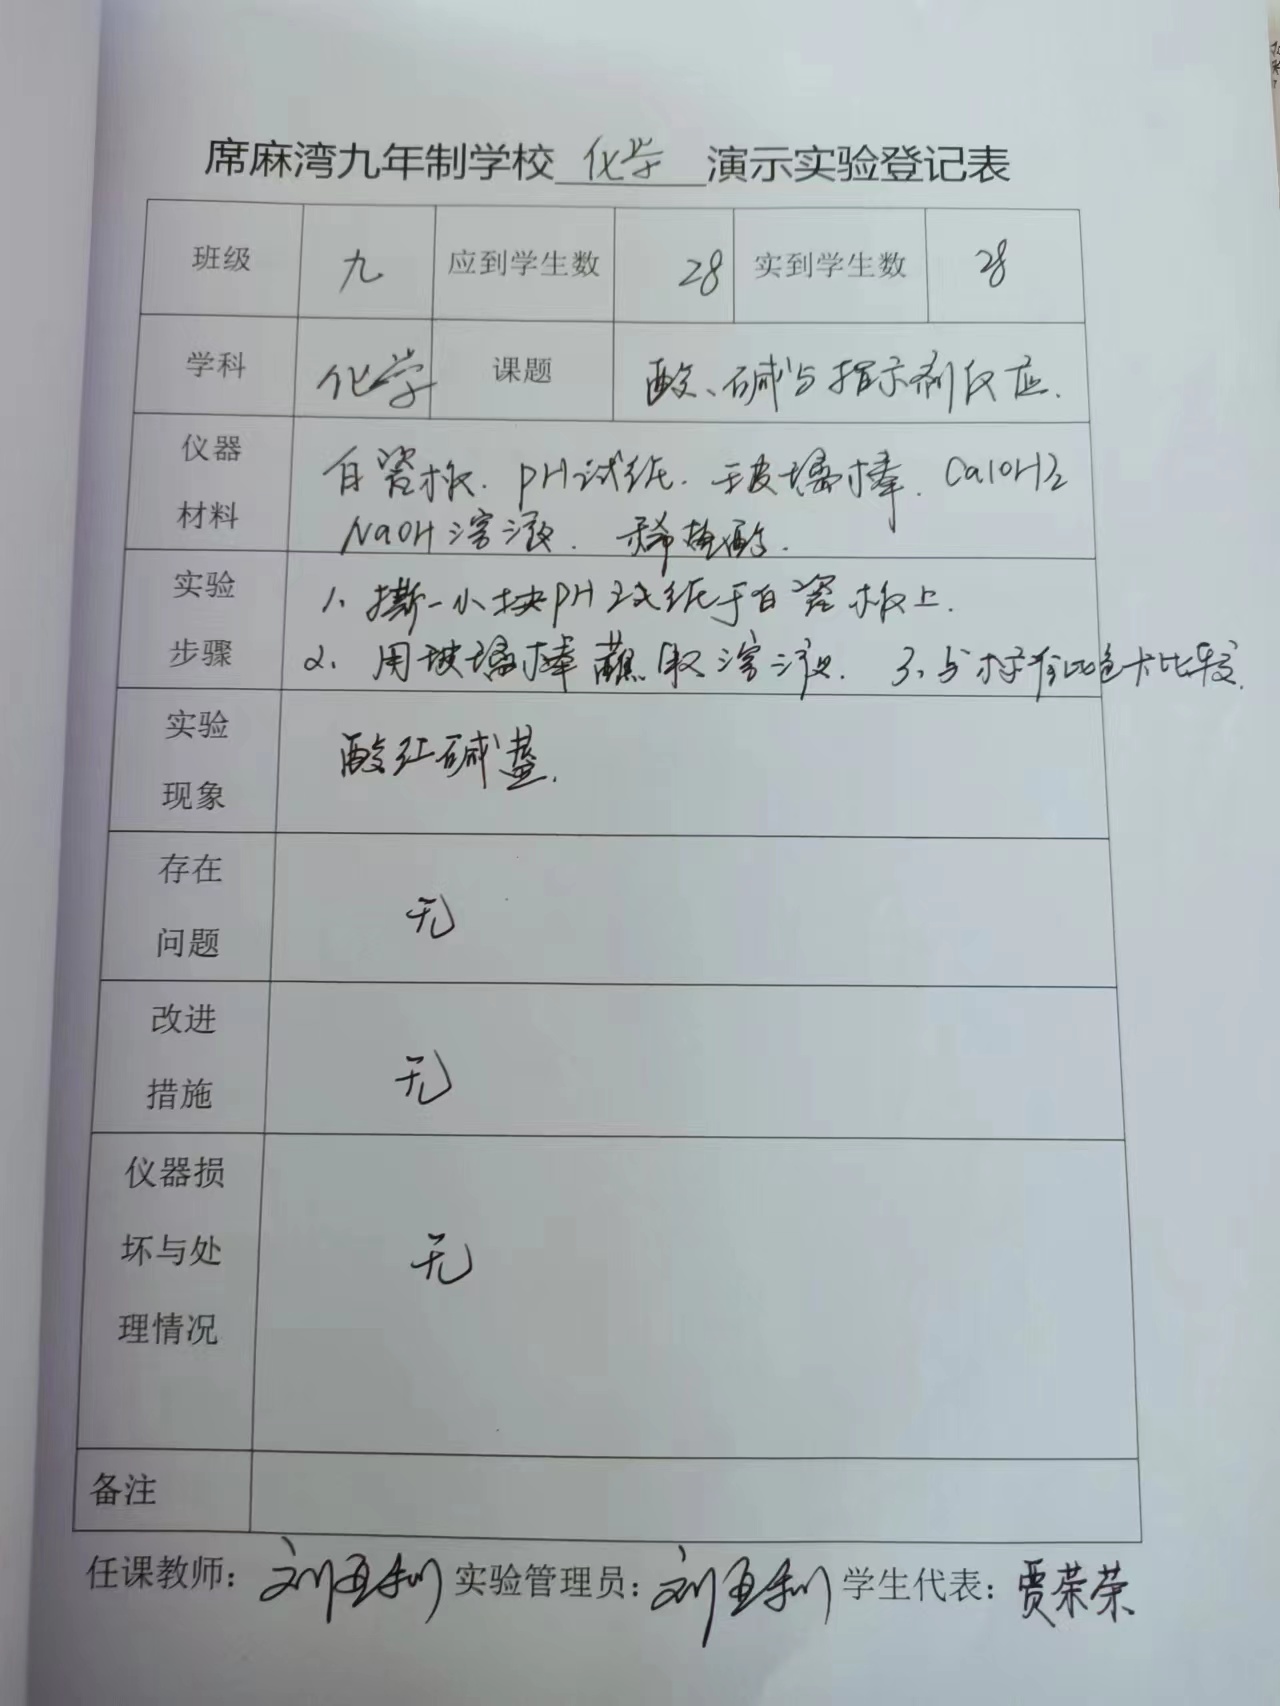 席麻湾九年制学校 化学 演示实验登记表
班级 九 应到学生数 28 实到学生数 28
学科 化学 课题 酸、碱与指示剂反应.
仪器材料 白瓷板. PH试纸. 玻璃棒. Ca(OH)2
NaOH溶液. 稀盐酸.
实验步骤 1、撕一小块PH试纸于白瓷板上.
2、用玻璃棒蘸取溶液. 3、与标准比色卡比较.
实验现象 酸红碱蓝.
存在问题 无
改进措施 无
仪器损坏与处理情况 无
备注
任课教师: 刘亚利 实验管理员: 刘亚利 学生代表: 贾荣荣